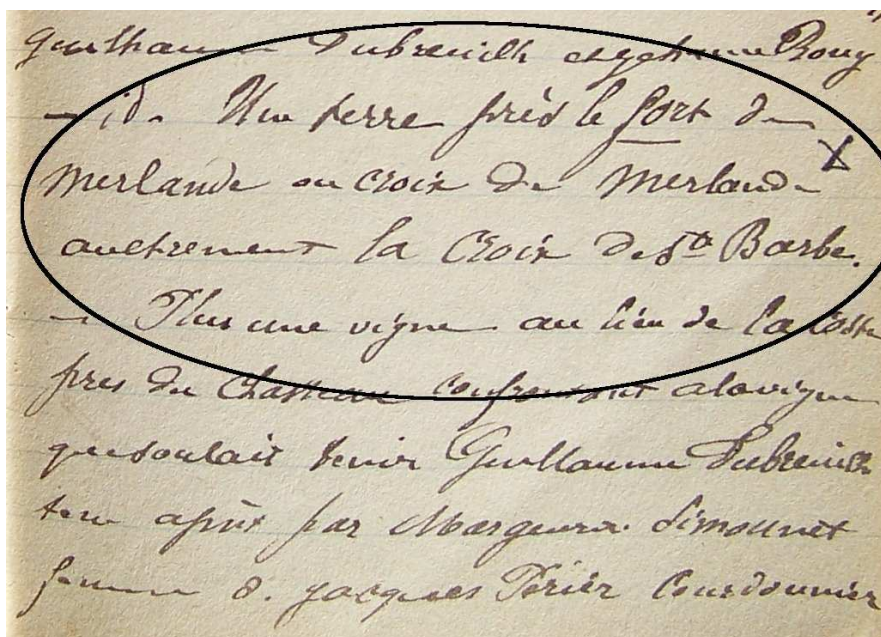 Guilhaume Dubreuilh et Jehanne Rouy
— id. Une terre près le fort de
Merlande ou croix de Merlande X
aultrement la Croix de Ste Barbe.
— Plus une vigne au lieu de la Coste
près du Chasteau confrontant a la vigne
que soulait tenir Guillaume Dubreuilh
tenu après par Marguerite Simounet
femme d. Jacques Périer Courdounier